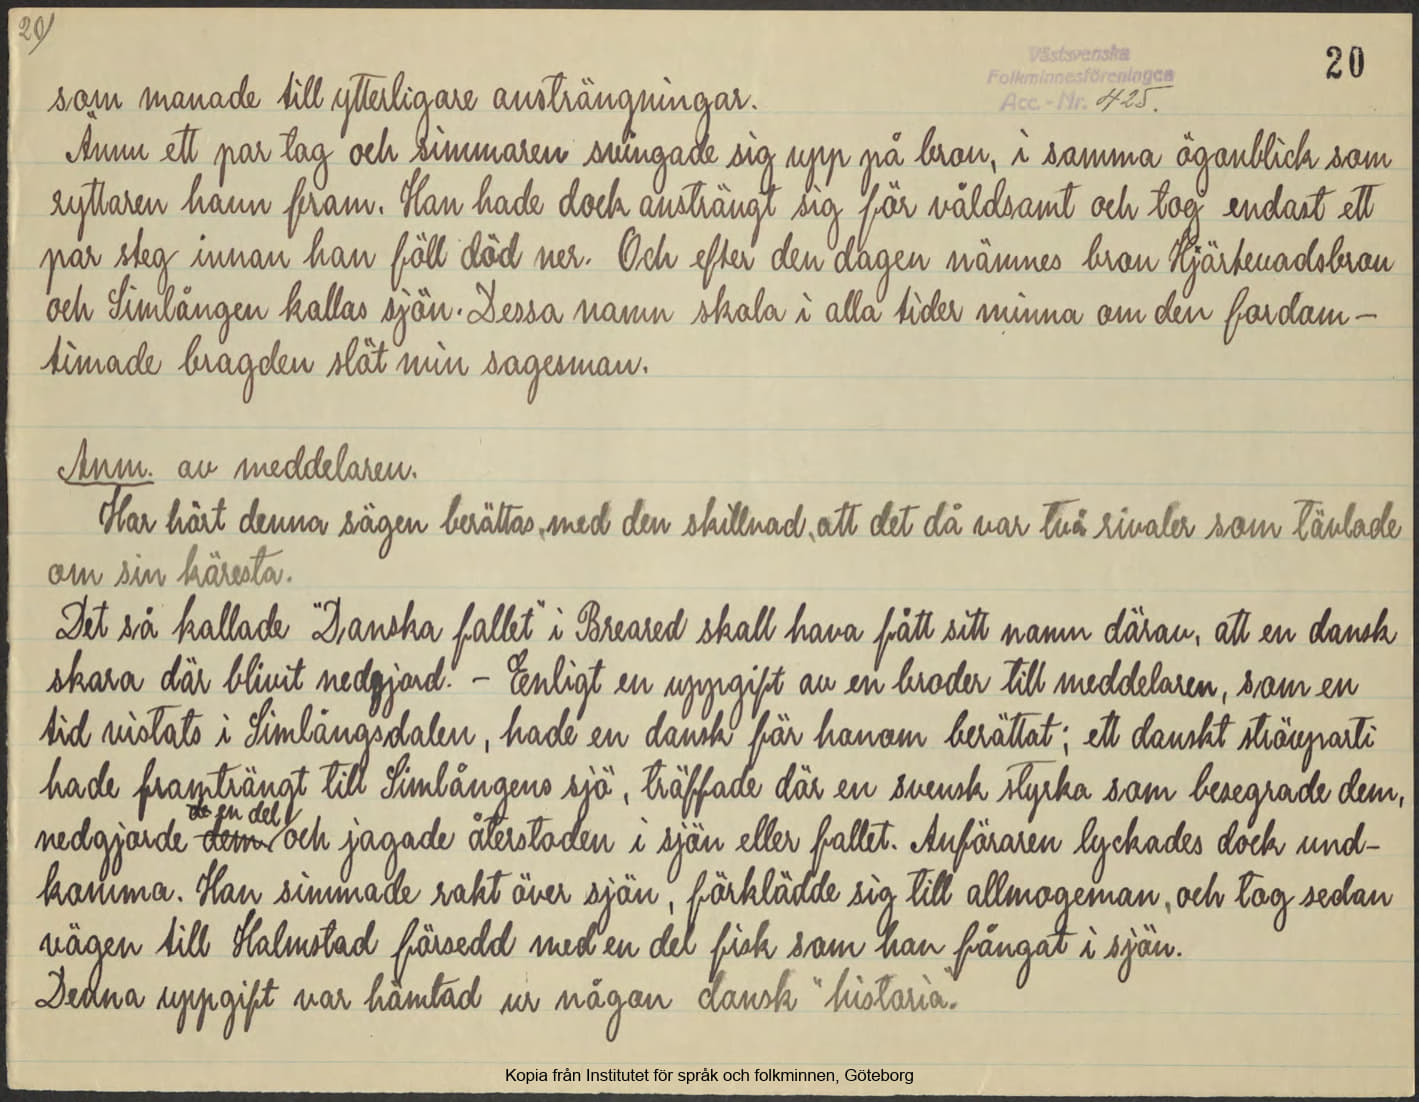 20)
Västsvenska
Folkminnesföreningen
Acc. - Nr. 425.
20
som manade till ytterligare ansträngningar.
Ännu ett par tag och simmaren svingade sig upp på bron, i samma ögonblick som
ryttaren hann fram. Han hade dock ansträngt sig för våldsamt och tog endast ett
par steg innan han föll död ner. Och efter den dagen nämnes bron Hjärtevadsbron
och Simlången kallas sjön. Dessa namn skola i alla tider minna om den fordom-
timade bragden slöt min sagesman.
Anm. av meddelaren.
Har hört denna sägen berättas, med den skillnad, att det då var två rivaler som tävlade
om sin käresta.
Det så kallade "Danska fallet" i Breared skall hava fått sitt namn därav, att en dansk
skara där blivit nedgjord. - Enligt en uppgift av en broder till meddelaren, som en
tid vistats i Simlångsdalen, hade en dansk för honom berättat; ett danskt ströveparti
hade framträngt till Simlångens sjö, träffade där en svensk styrka som besegrade dem,
de en del
nedgjorde dem och jagade återstoden i sjön eller fallet. Anföraren lyckades dock und-
komma. Han simmade rakt över sjön, förklädde sig till allmogeman, och tog sedan
vägen till Halmstad försedd med en del fisk som han fångat i sjön.
Denna uppgift var hämtad ur någon dansk "historia".
Kopia från Institutet för språk och folkminnen, Göteborg